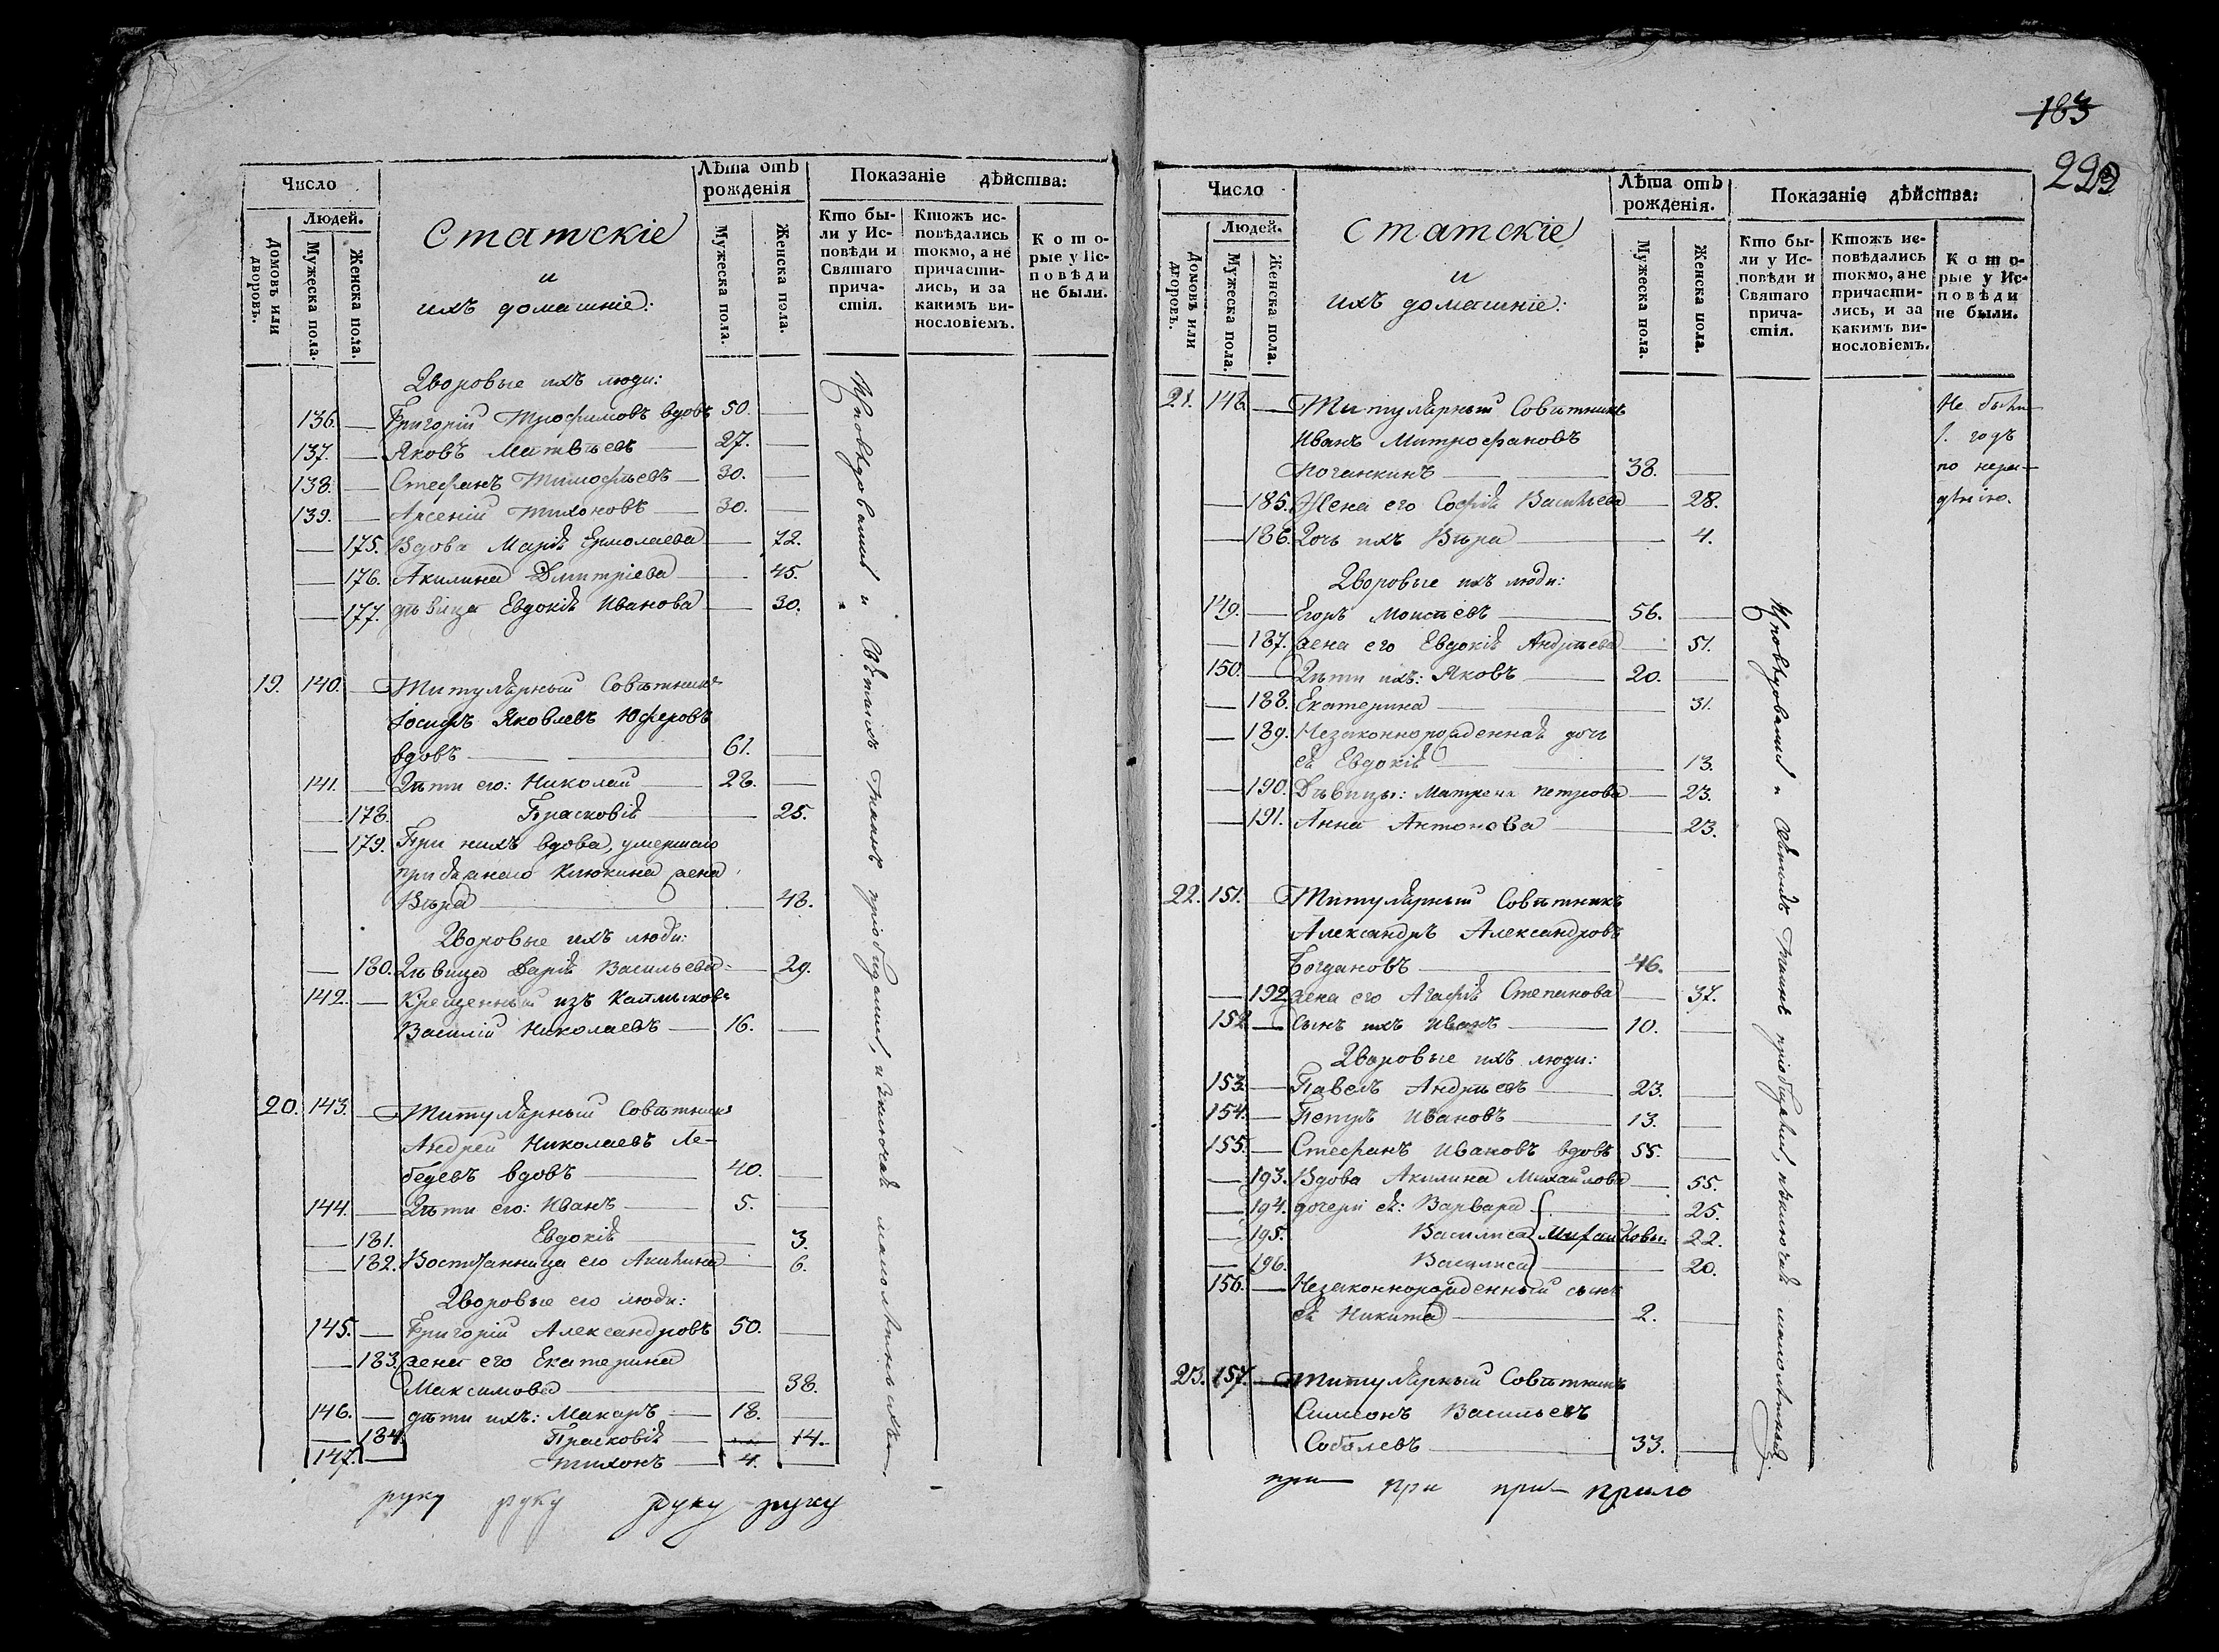 Число
Людей.
Домовъ или дворовъ.
Мужеска пола.
Женска пола.
Статскіе
и
ихъ домашніе:
Лѣта отъ рожденія
Мужеска пола.
Женска пола.
Показаніе дѣйства:
Кто бы-
ли у Ис-
повѣди и
Святаго
прича-
стія.
Ктожъ ис-
повѣдались
токмо, а не
причасти-
лись, и за
какимъ ви-
нословіемъ.
Кото-
рые у Ис-
повѣди
не были.
Дворовые ихъ люди:
136. — Григорій Трофимовъ вдовъ 50. —
137. — Яковъ Матвѣевъ — 27. —
138. — Стефанъ Тимофѣевъ — 30. —
139. — Арсеній Тихоновъ — 30. —
— 175. Вдова Марія Ермолаева — 72.
— 176. Акилина Дмитріева — 45.
— 177. дѣвица Евдокія Иванова — 30.
19. 140. — Титулярный Совѣтникъ
Іосифъ Яковлевъ Юферовъ
вдовъ — 61. —
141. — Дѣти его: Николай — 28. —
— 178. Прасковія — 25.
— 179. При нихъ вдова, умершаго
приказнаго Клюкина жена
Вѣра — 48.
Дворовые ихъ люди:
— 180. Дѣвица Дарія Васильева — 29.
142. — Крещенный изъ Калмыковъ
Василій Николаевъ — 16. —
20. 143. — Титулярный Совѣтникъ
Андрей Николаевъ Ле-
бедевъ вдовъ — 40. —
144. — Дѣти его: Иванъ — 5. —
— 181. Евдокія — 3.
— 182. Воспитанница его Акилина — 6.
Дворовые его люди:
145. — Григорій Александровъ 50. —
— 183. жена его Екатерина
Максимова — 38.
146. — дѣти ихъ: Макаръ — 18. —
— 184. Прасковія — 14.
147. — Тихонъ — 4. —
Исповѣдовались и Святыхъ Таинъ пріобщались, изключая малолѣтныхъ
руку руку руку руку
183
Число
Людей.
Домовъ или дворовъ.
Мужеска пола.
Женска пола.
Статскіе
и
ихъ домашніе:
Лѣта отъ рожденія.
Мужеска пола.
Женска пола.
Показаніе дѣйства:
Кто бы-
ли у Ис-
повѣди и
Святаго
прича-
стія.
Ктожъ ис-
повѣдались
токмо, а не
причасти-
лись, и за
какимъ ви-
нословіемъ.
Кото-
рые у Ис-
повѣди
не были.
21. 148. — Титулярный Совѣтникъ Не были
Иванъ Митрофановъ 1. годъ
Поганкинъ — 38. — по нера-
— 185. Жена его Софія Васильева — 28. дѣнію.
— 186. Дочь ихъ Вѣра — 4.
Дворовые ихъ люди:
149. — Егоръ Моисѣевъ — 56. —
— 187. жена его Евдокія Андрѣева — 51.
150. — Дѣти ихъ: Яковъ — 20. —
— 188. Екатерина — 31.
— 189. Незаконнорожденная дочь
ея Евдокія — 13.
— 190. Дѣвицы: Матрена Петрова — 23.
— 191. Анна Антонова — 23.
22. 151. — Титулярный Совѣтникъ
Александръ Александровъ
Богдановъ — 46. —
— 192. жена его Агафія Степанова — 37.
152. — Сынъ ихъ Иванъ — 10. —
Дворовые ихъ люди:
153. — Павелъ Андрѣевъ — 23. —
154. — Петръ Ивановъ — 13. —
155. — Стефанъ Ивановъ вдовъ 55. —
— 193. Вдова Акилина Михайлова — 55.
— 194. дочери ея: Варвара — 25.
— 195. Василиса Михайловы 22.
— 196. Василиса — 20.
156. — Незаконнорожденный сынъ
ея Никита — 2. —
23. 157. — Титулярный Совѣтникъ
Симеонъ Васильевъ
Соболевъ — 33. —
Исповѣдовались и Святыхъ Таинъ пріобщались, изключая малолѣтныхъ
при при при прило